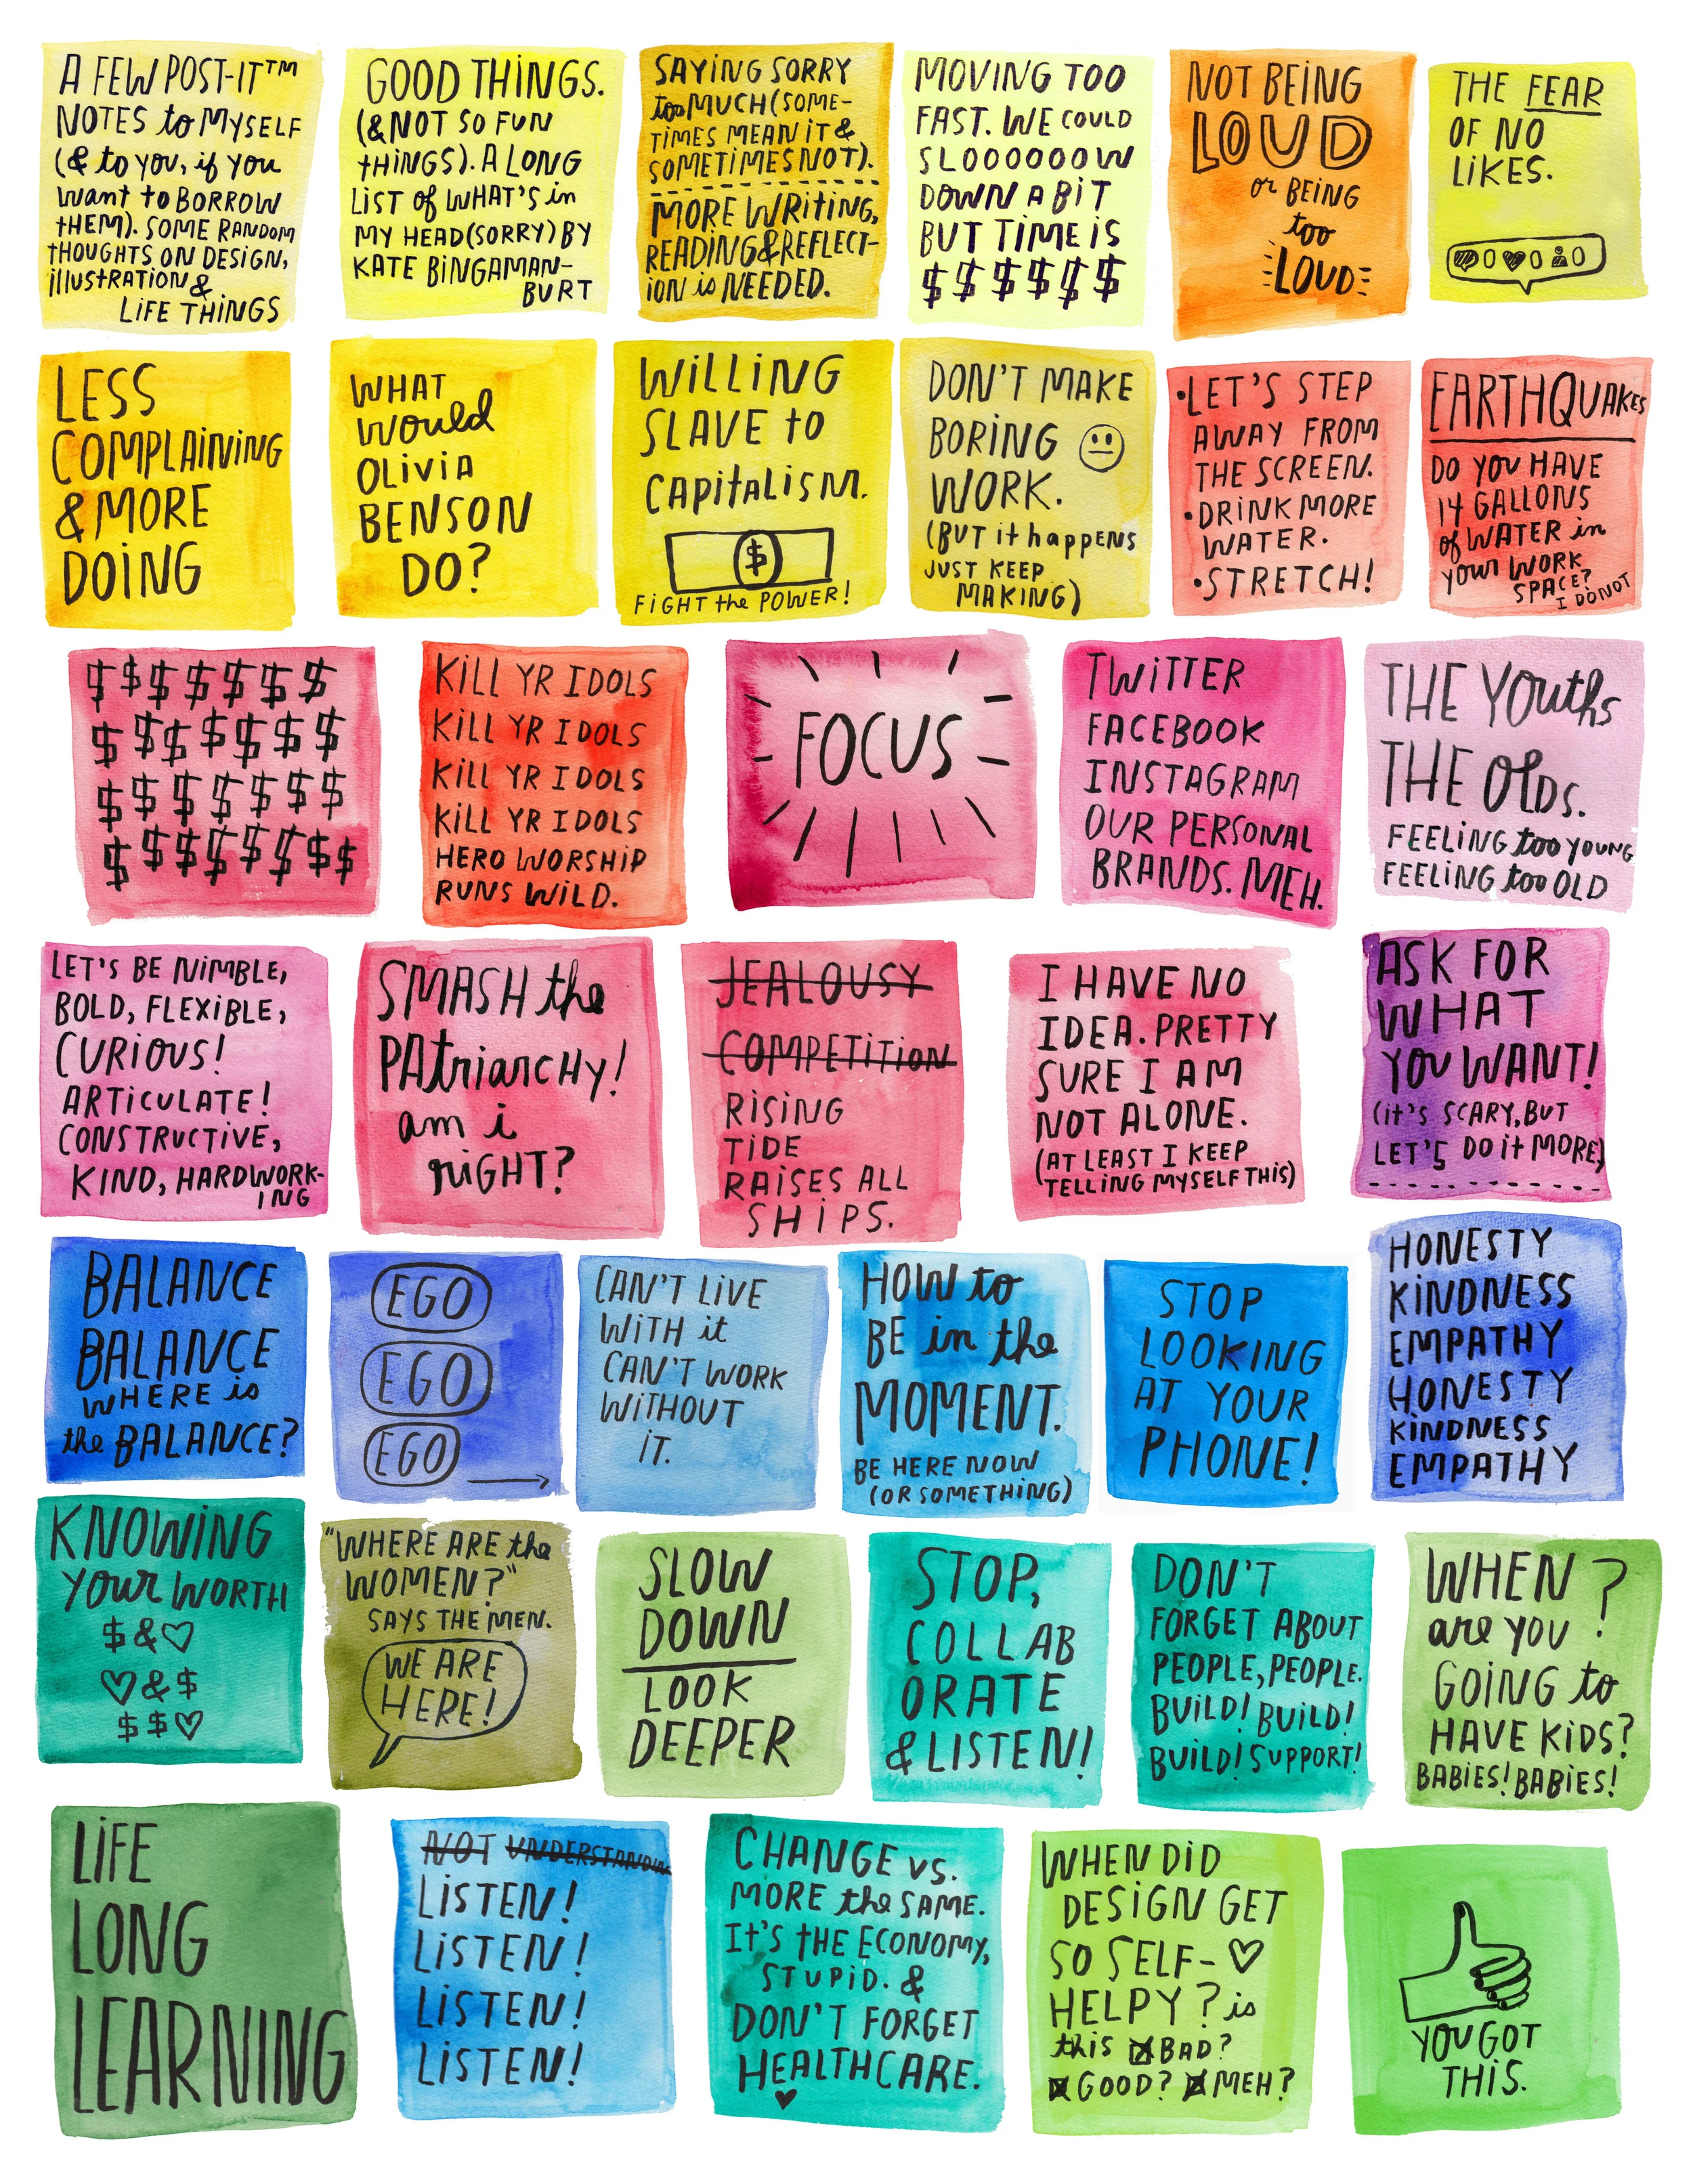 A FEW POST-IT™
NOTES to MYSELF
(& to you, if you
want to BORROW
tHEM). SOME RANDOM
tHOUGHTS ON DESIGN,
illUStRAtiON &
LiFE THiNGS
GOOD THiNGS.
(& NOT SO FUN
tHiNGS). A LONG
LiST of WHAT'S in
MY HEAD (SORRY) BY
KATE BiNGAMAN-
BURT
SAYiNG SORRY
too MUCH (SOME-
TiMES MEAN iT &
SOMETiMES NOT).
MORE WRitiNG,
READiNG & REFLECT-
iON is NEEDED.
MOViNG TOO
FAST. WE COULD
SLOOOOOOW
DOWN A BiT
BUT TiME iS
$ $ $ $ $ $
NOT BEiNG
LOUD
or BEiNG
too
LOUD
THE FEAR
OF NO
LiKES.
0 0 0
LESS
COMPLAiNiNG
& MORE
DOiNG
WHAT
would
OLiViA
BENSON
DO?
WiLLiNG
SLAVE to
CAPitALiSM.
$
FiGHT the POWER!
DON'T MAKE
BORiNG
WORK.
(BUT it happENS
JUST KEEP
MAKiNG)
•LET'S STEP
AWAY FROM
THE SCREEN.
•DRiNK MORE
WATER.
•STRETCH!
EARTHQUAKES
DO YOU HAVE
14 GALLONS
of WATER in
your WORK
SPACE?
I DO NOT
$ $ $ $ $ $ $
$ $ $ $ $ $ $
$ $ $ $ $ $ $
$ $ $ $ $ $ $ $
KiLL YR IDOLS
KiLL YR IDOLS
KiLL YR IDOLS
KiLL YR IDOLS
HERO WORSHiP
RUNS WiLD.
FOCUS
TWiTTER
FACEBOOK
INSTAGRAM
OUR PERSONAL
BRANDS. MEH.
THE YOuths
THE Olds.
FEELiNG too YOUNG
FEELiNG too OLD
LET'S BE NiMBLE,
BOLD, FLEXiBLE,
CURiOUS!
ARTiCULATE!
CONSTRUCTiVE,
KiND, HARDWORK-
ING
SMASH the
PAtriarCHY!
am i
riGHT?
JEALOUSY
COMPETiTiON
RiSiNG
TiDE
RAiSES ALL
SHiPS.
I HAVE NO
IDEA. PRETTY
SURE I AM
NOT ALONE.
(AT LEAST I KEEP
TELLiNG MYSELF THiS)
ASK FOR
WHAT
YOU WANT!
(it'S SCARY, BUT
LET'S DO it MORE)
BALANCE
BALANCE
WHERE is
the BALANCE?
EGO
EGO
EGO
CAN'T LiVE
WiTH it
CAN'T WORK
WiTHOUT
iT.
HOW to
BE in the
MOMENT.
BE HERE NOW
(OR SOMETHiNG)
STOP
LOOKiNG
AT YOUR
PHONE!
HONESTY
KiNDNESS
EMPATHY
HONESTY
KiNDNESS
EMPATHY
KNOWiNG
your WORTH
$ & ♡
♡ & $
$ $ ♡
"WHERE ARE the
WOMEN?"
SAYS THE MEN.
WE ARE
HERE!
SLOW
DOWN
LOOK
DEEPER
STOP,
COLLAB
ORATE
& LiSTEN!
DON'T
FORGET ABOUT
PEOPLE, PEOPLE.
BUiLD! BUiLD!
BUiLD! SUPPORT!
WHEN ?
are you
GOiNG to
HAVE KiDS?
BABiES! BABiES!
LiFE
LONG
LEARNiNG
NOT UNDERSTANDiNG
LiSTEN!
LiSTEN!
LiSTEN!
LiSTEN!
CHANGE VS.
MORE the SAME.
It'S tHE ECONOMY,
STUPiD. &
DON'T FORGET
HEALTHCARE.
♥
WHEN DiD
DESiGN GET
SO SELF- ♡
HELPY? is
this ☒ BAD?
☒ GOOD? ☒ MEH?
YOU GOT
THiS.